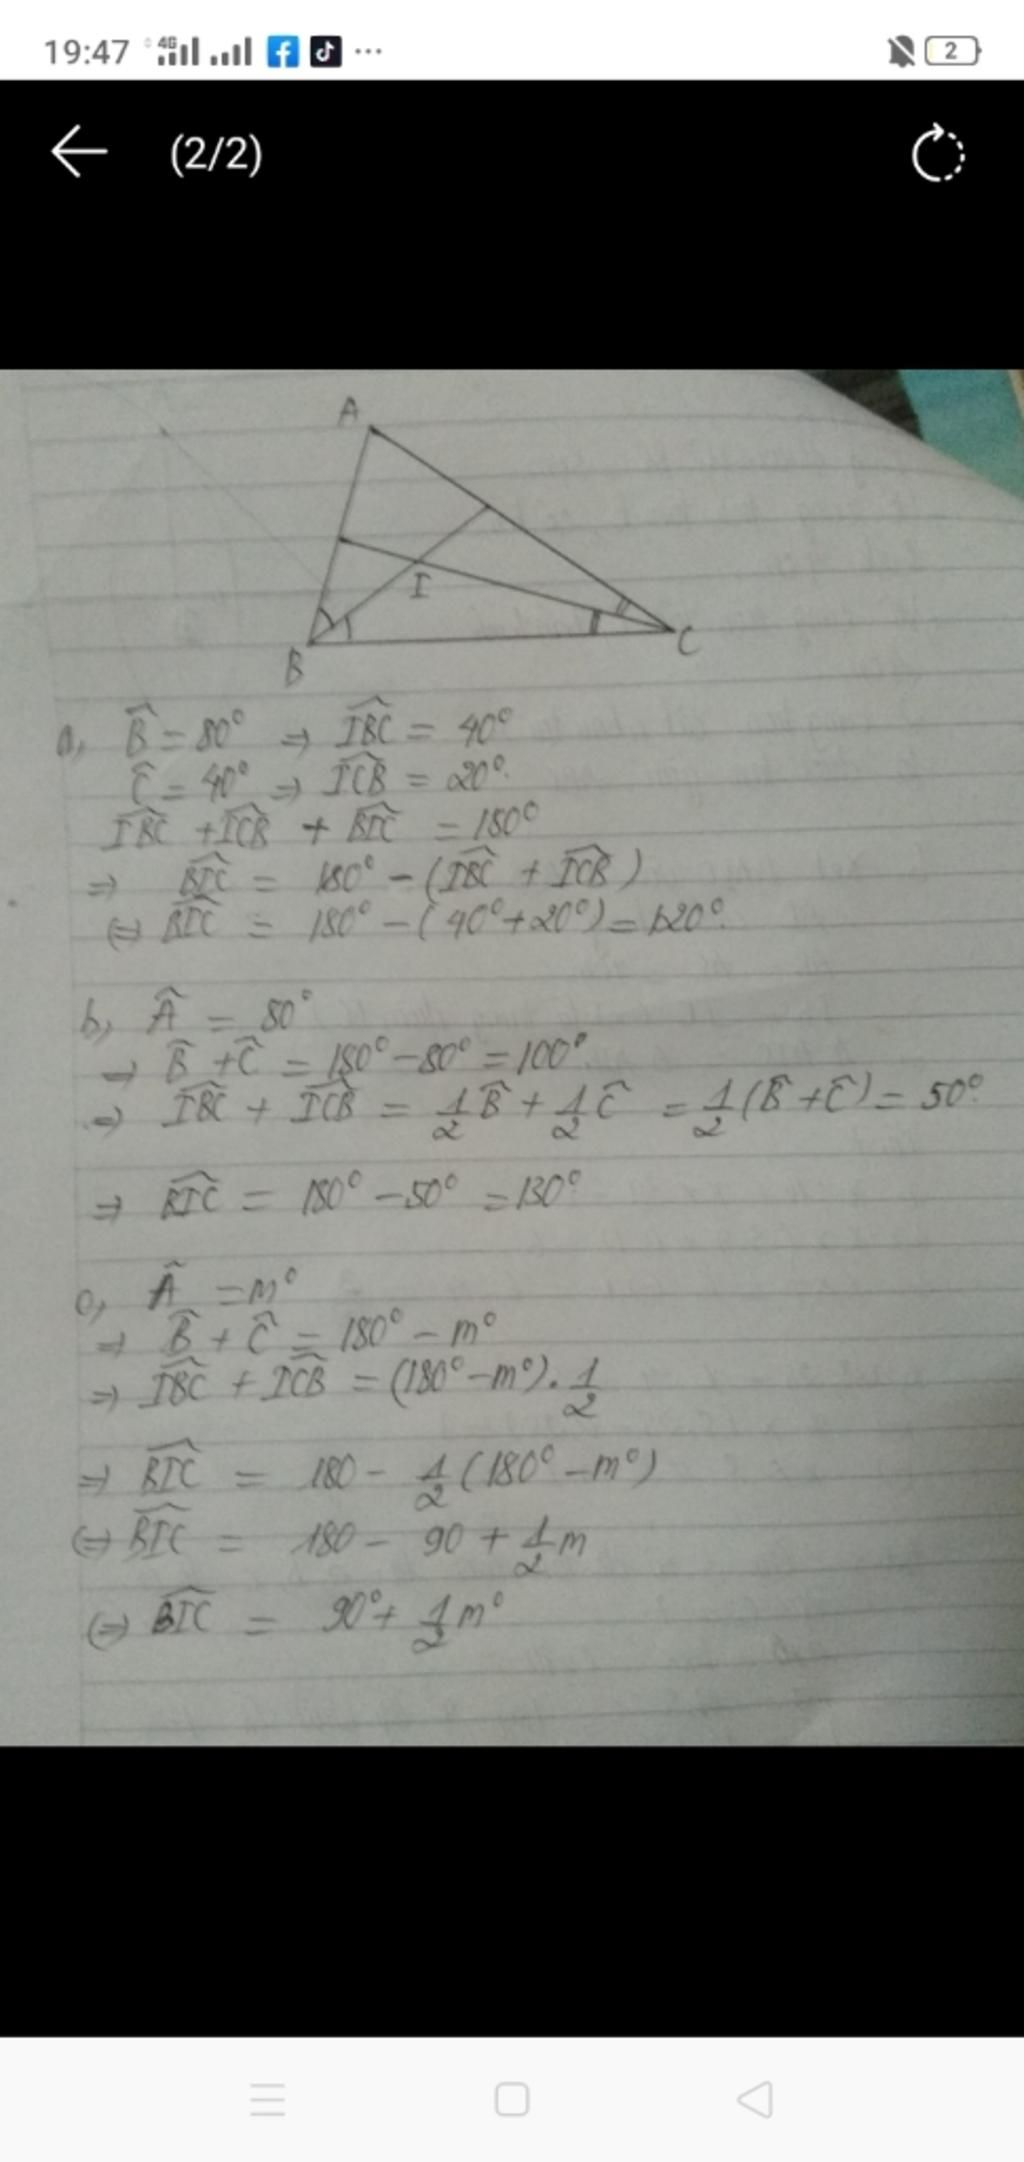 19:47 4G ... 2
(2/2)
A
I
B
C
a, B̂ = 80° => \widehat{IBC} = 40°
Ĉ = 40° => \widehat{ICB} = 20°.
\widehat{IBC} + \widehat{ICB} + \widehat{BIC} = 180°
=> \widehat{BIC} = 180° - (\widehat{IBC} + \widehat{ICB})
(=) \widehat{BIC} = 180° - (40° + 20°) = 120°.
b, Â = 80°
=> B̂ + Ĉ = 180° - 80° = 100°
=> \widehat{IBC} + \widehat{ICB} = 1/2 B̂ + 1/2 Ĉ = 1/2 (B̂ + Ĉ) = 50°
=> \widehat{BIC} = 180° - 50° = 130°
c, Â = m°
=> B̂ + Ĉ = 180° - m°
=> \widehat{IBC} + \widehat{ICB} = (180° - m°) . 1/2
=> \widehat{BIC} = 180 - 1/2 (180° - m°)
(=) \widehat{BIC} = 180 - 90 + 1/2 m
(=) \widehat{BIC} = 90° + 1/2 m°